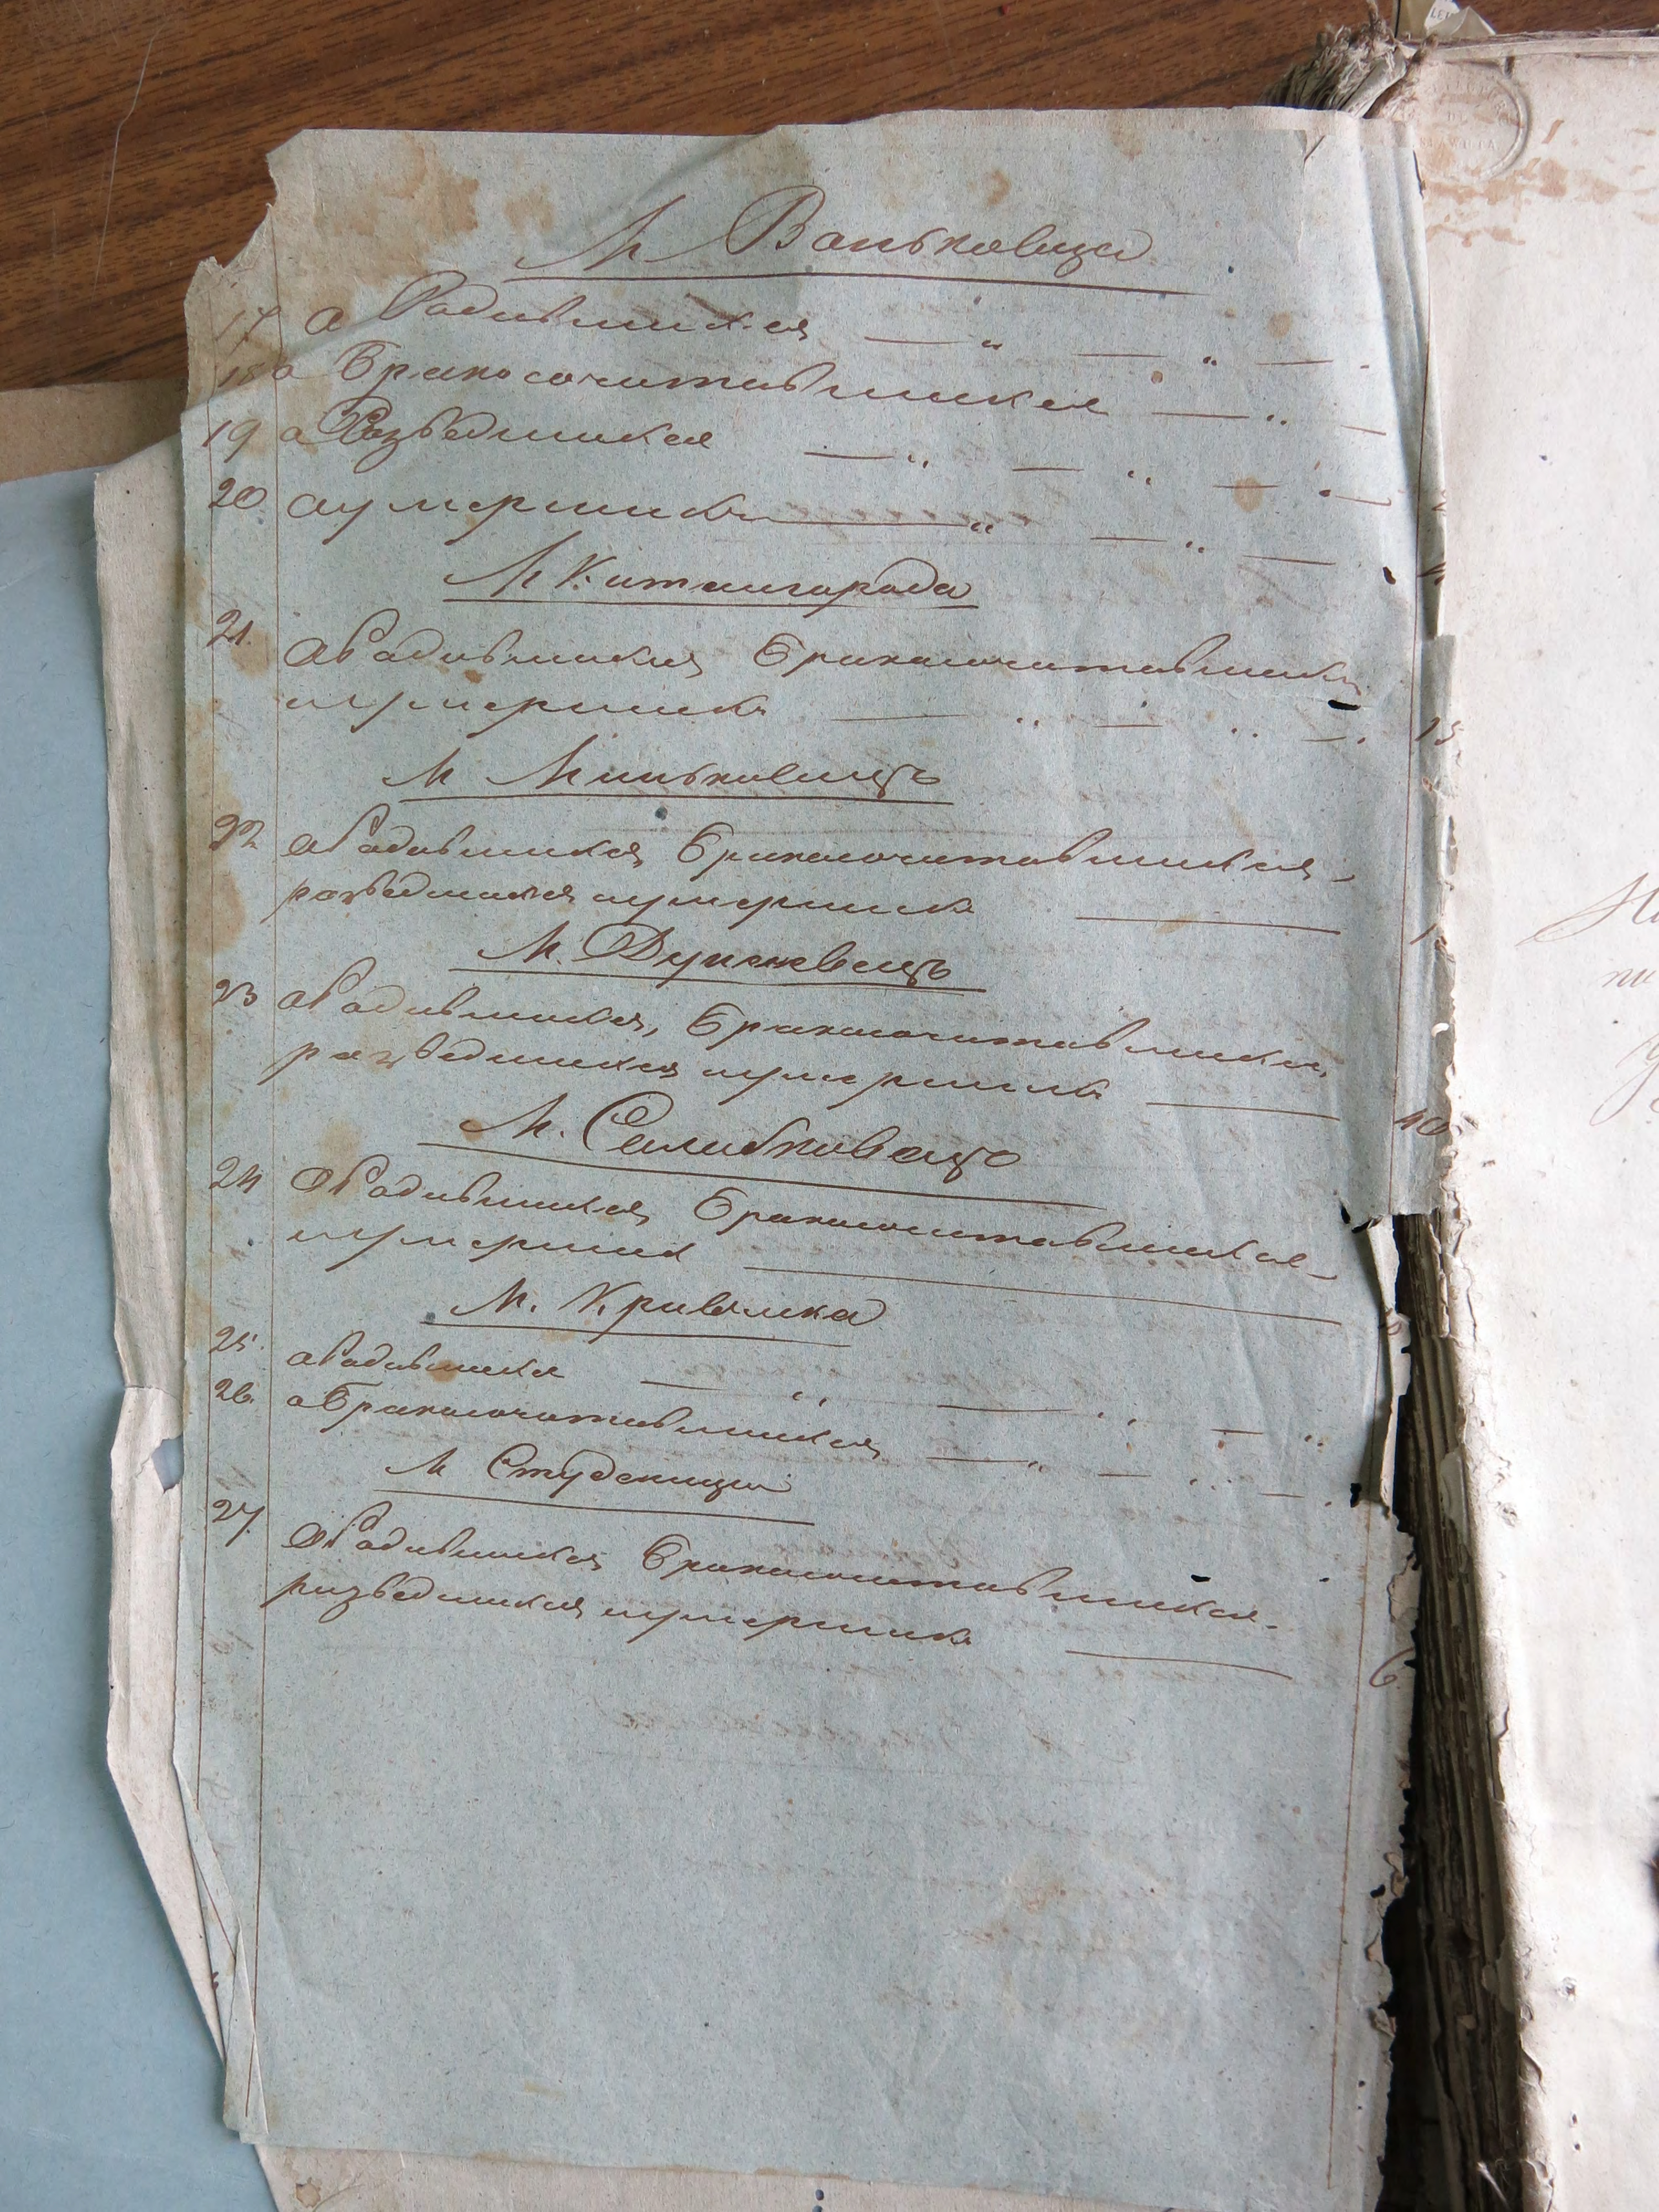 М Ваньковцы
17 О Родившихся — „ — „ — .
18 о Бракосочитавшихся — „ —
19 о Розведшихся — „ — „ — „ —
20 оумершихъ — „ — „ —
М Китайгорода
21. оРодившихся Бракосочитавшихся
иумершихъ — „ — „ — . 15
М Миньковецъ
22 оРодившихся Бракосочитавшихся
розведшихся иумершихъ —
М. Дунаевецъ
23 оРодившихся, Бракосочитавшихся,
розведшихся иумершихъ — 10
М. Солобковецъ
24 оРодившихся Бракосочитавшихся
иумерших —
М. Кривчика
25. оРодившихся — „ — „ — „
26. оБракосочитавшихся — „ — „ — .
М Студеницы
27. оРодившихся Бракосочитавшихся
розведшихся иумерших — 6